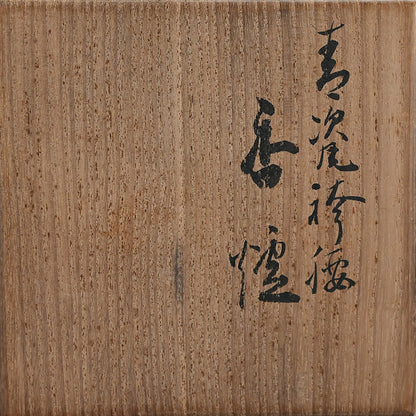 青瓷袴腰
香爐